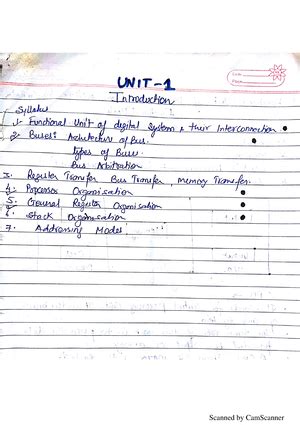 UNIT-1
Introduction
Syllabus
1. Functional Unit of digital System & their Interconnection
2. Buses: Architecture of Bus.
Types of Buses
Bus Arbitration
3. Register Transfer Bus Transfer, Memory Transfer.
4. Processor Organisation
5. General Register Organisation
6. Stack Organisation
7. Addressing Modes
Scanned by CamScanner